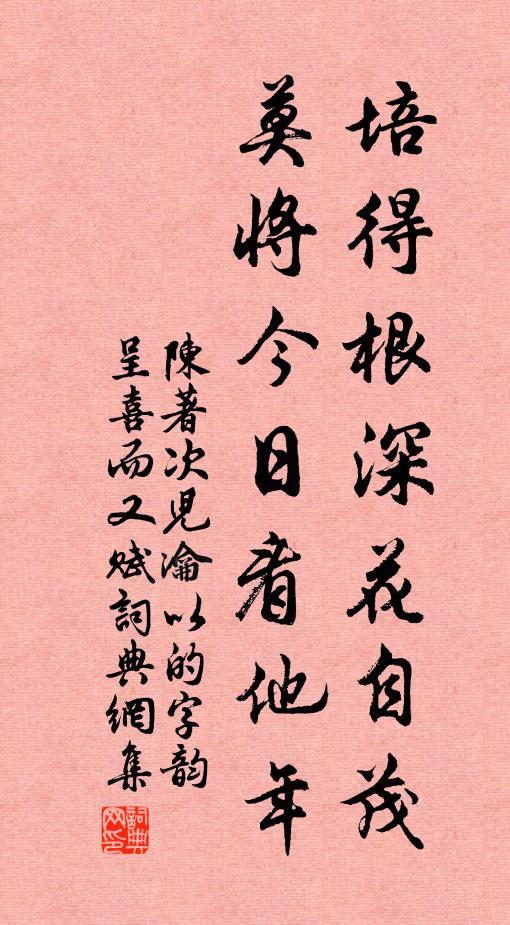 培得根深花自茂
莫將今日看他年
陳著次兒瀹以的字韵
呈喜而又賦詞典網集
詞典網印